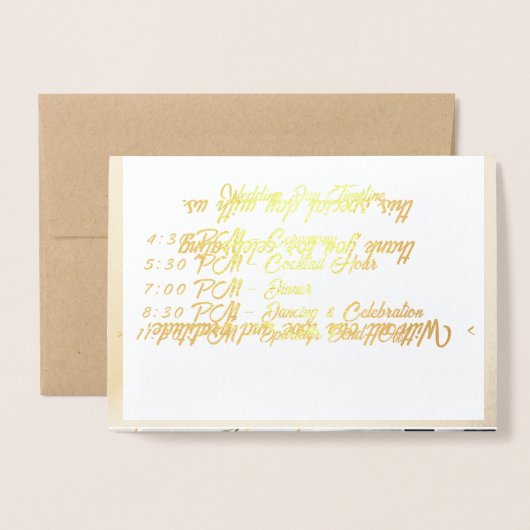 Wedding Day Timeline
this special day with us.
4:30 PM – Ceremony
thank you for celebrating
5:30 PM – Cocktail Hour
7:00 PM – Dinner
8:30 PM – Dancing & Celebration
With all our love and gratitude!
PM – Sparkler Send Off